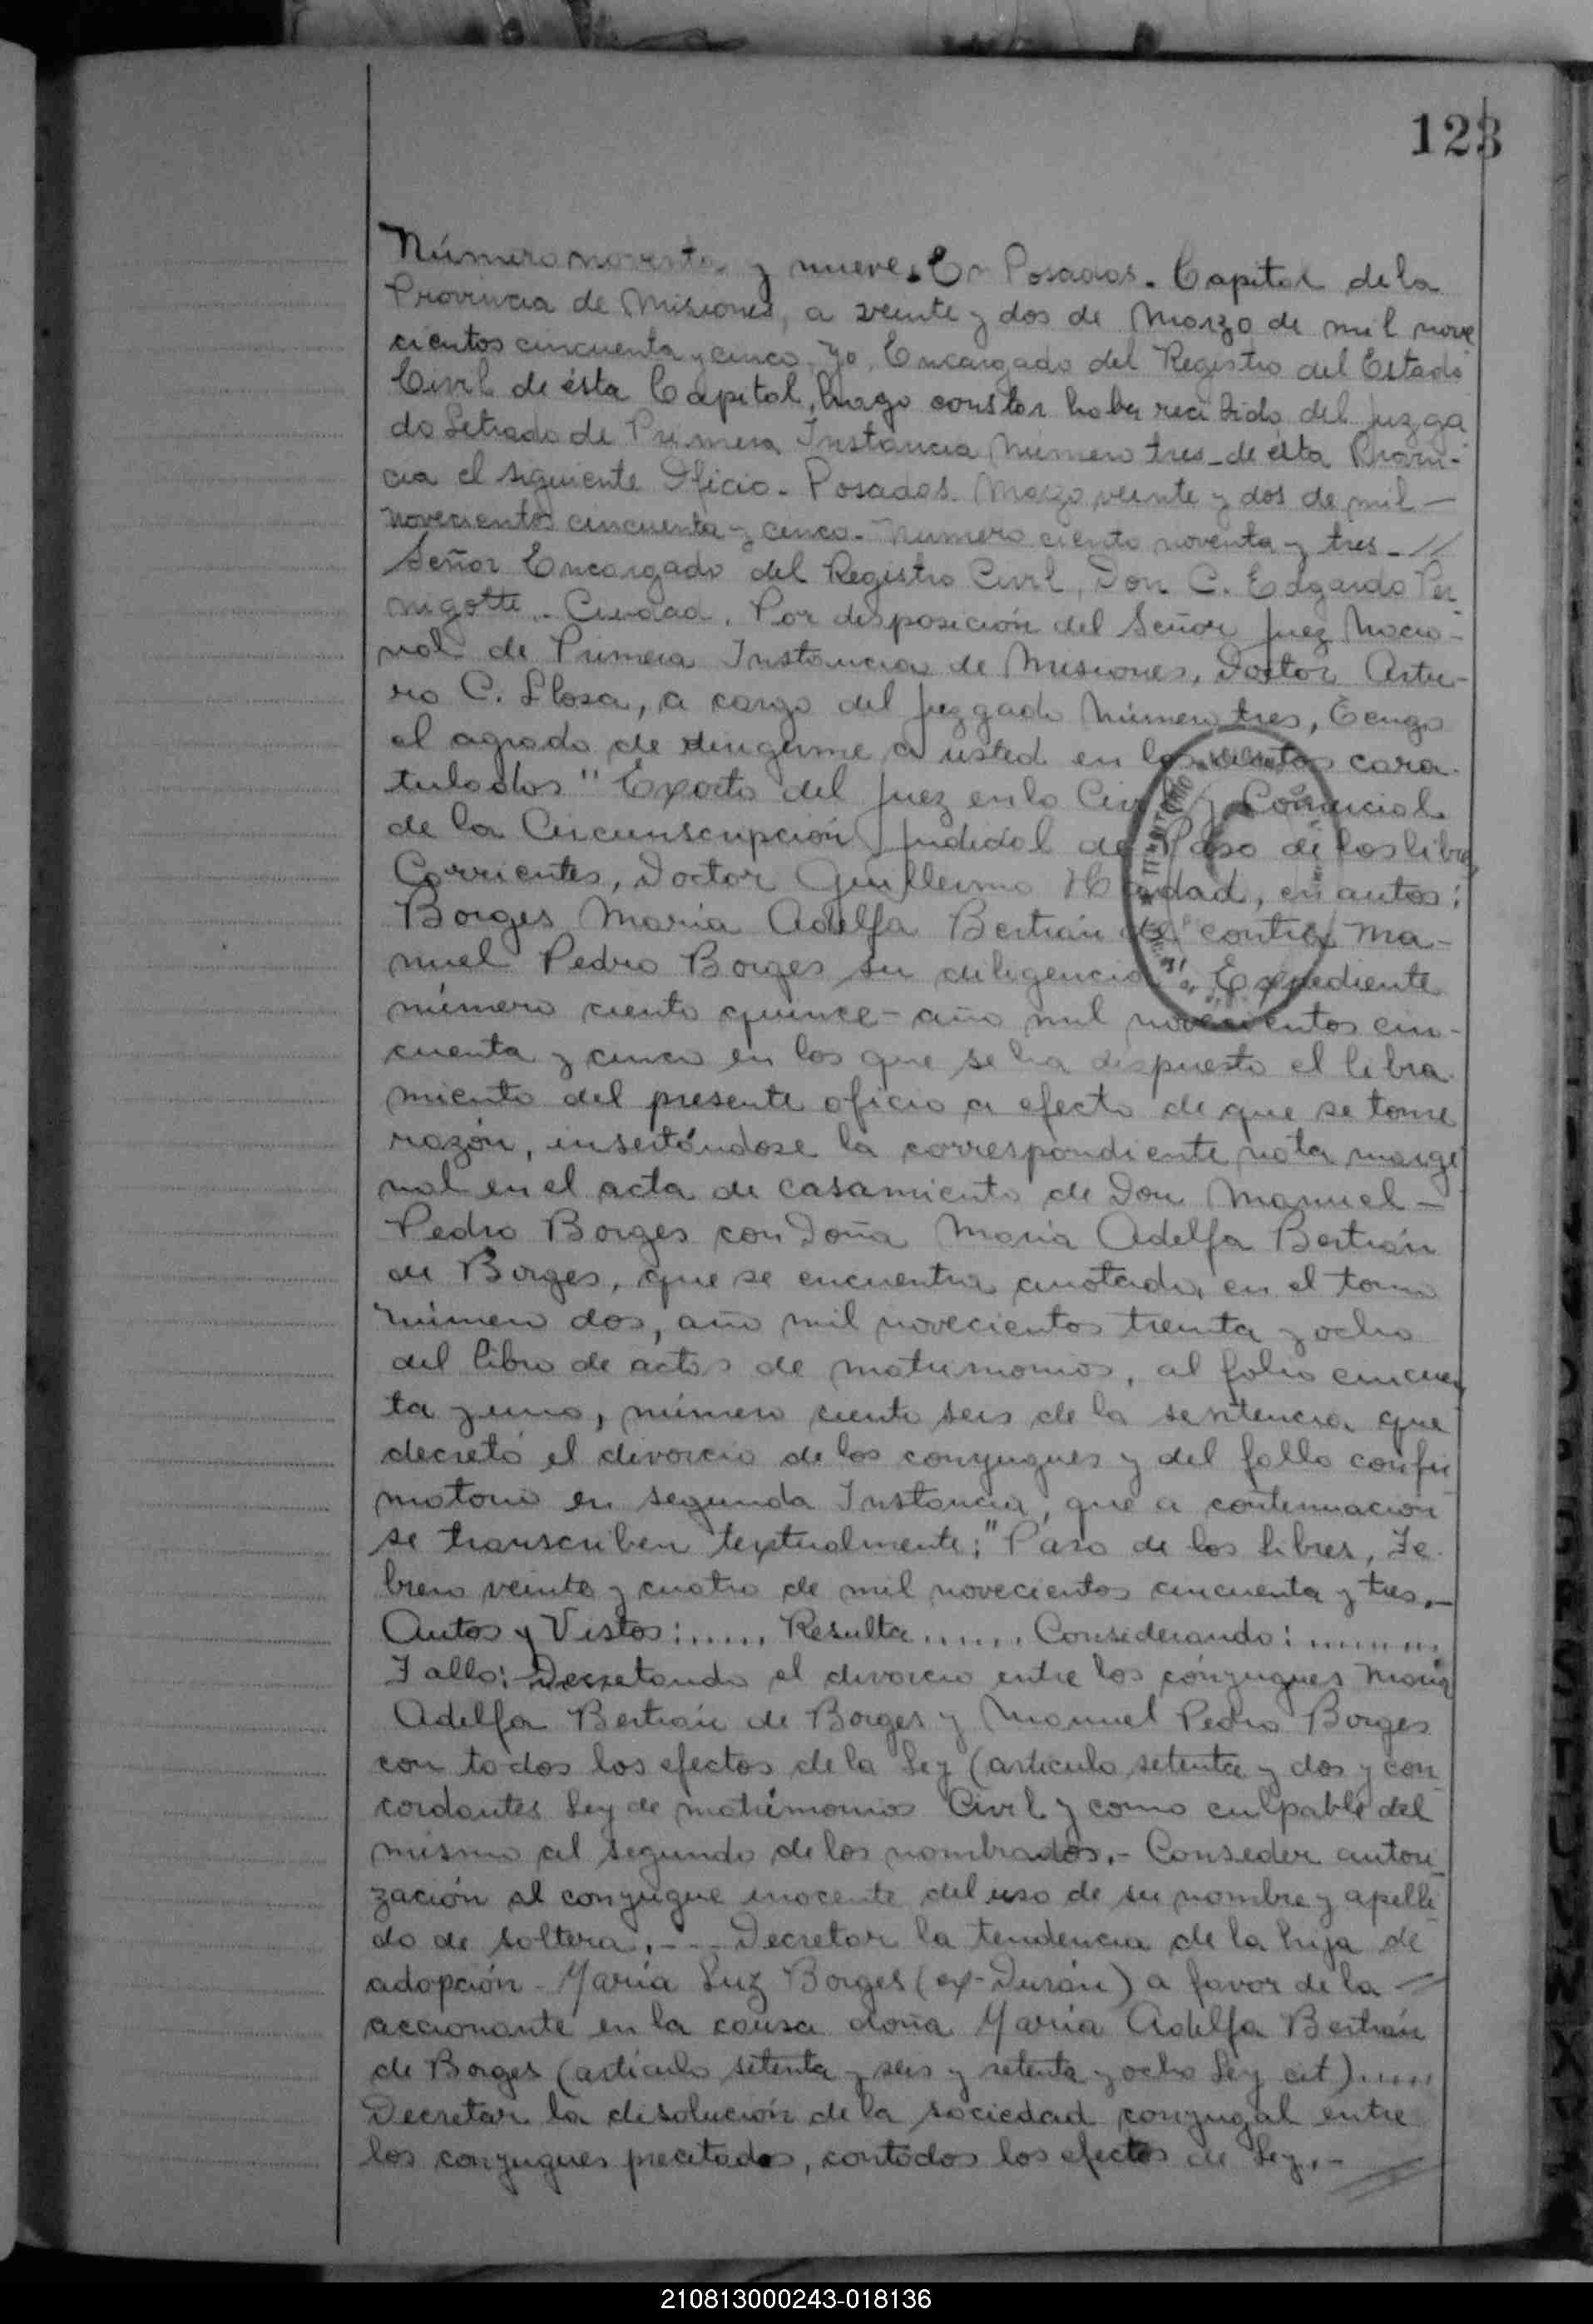 123
Número noventa y nueve. En Posadas. Capital de la
Provincia de Misiones, a veinte y dos de Marzo de mil nove
cientos cincuenta y cinco, Yo, Encargado del Registro del Estado
Civil de ésta Capital, hago constar haber recibido del Juzga
do Letrado de Primera Instancia Número tres de ésta Provin-
cia el siguiente Oficio. Posadas. Marzo veinte y dos de mil —
novecientos cincuenta y cinco. Numero ciento noventa y tres. //
Señor Encargado del Registro Civil, Don C. Edgardo Per
nigotte. Ciudad. Por disposición del Señor Juez Nacio-
nal de Primera Instancia de Misiones, Doctor Artu-
ro C. Llosa, a cargo del Juzgado Número tres, Tengo
el agrado de dirigirme a usted en los autos cara-
tulados "Exorto del Juez en lo Civil y Comercial
de la Circunscripción Judicial de Paso de los libres
Corrientes, Doctor Guillermo en autos:
Borges Maria Adelfa Bertrán de contra Ma-
nuel Pedro Borges su diligencia". Expediente
número ciento quince - año mil novecientos cin-
cuenta y cinco en los que se ha dispuesto el libra-
miento del presente oficio a efecto de que se tome
razón, insertándose la correspondiente nota margi
nal en el acta de casamiento de Don Manuel —
Pedro Borges con Doña Maria Adelfa Bertrán
de Borges, que se encuentra anotada, en el tomo
número dos, año mil novecientos treinta y ocho
del libro de actas de matrimonios, al folio cincuen
ta y uno, número ciento seis de la sentencia que
decretó el divorcio de los conyugues y del fallo confir
matorio en segunda Instancia, que a continuacion
se transcriben textualmente: "Paso de los Libres, Fe-
brero veinte y cuatro de mil novecientos cincuenta y tres.—
Autos y Vistos:..... Resulta...... Considerando:.........
Fallo: Decretando el divorcio entre los cónyugues Maria
Adelfa Bertrán de Borges y Manuel Pedro Borges
con todos los efectos de la Ley (artículo setenta y dos y con
cordantes Ley de matrimonios Civil y como culpable del
mismo al segundo de los nombrados.- Conseder autori
zación al conyugue inocente del uso de su nombre y apelli
do de soltera.--- Decretar la tendencia de la hija de
adopción - María Luz Borges (ex-Durán) a favor de la —
accionante en la causa doña María Adelfa Bertrán
de Borges (artículo setenta y seis y setenta y ocho Ley cit)....
Decretar la disolución de la sociedad conyugal entre
los conyugues precitados, con todos los efectos de Ley.-
210813000243-018136